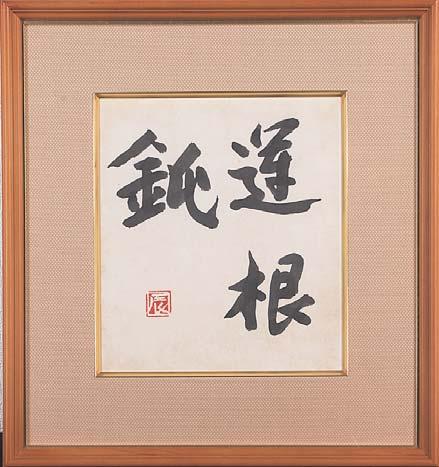 運根
鈍
辰